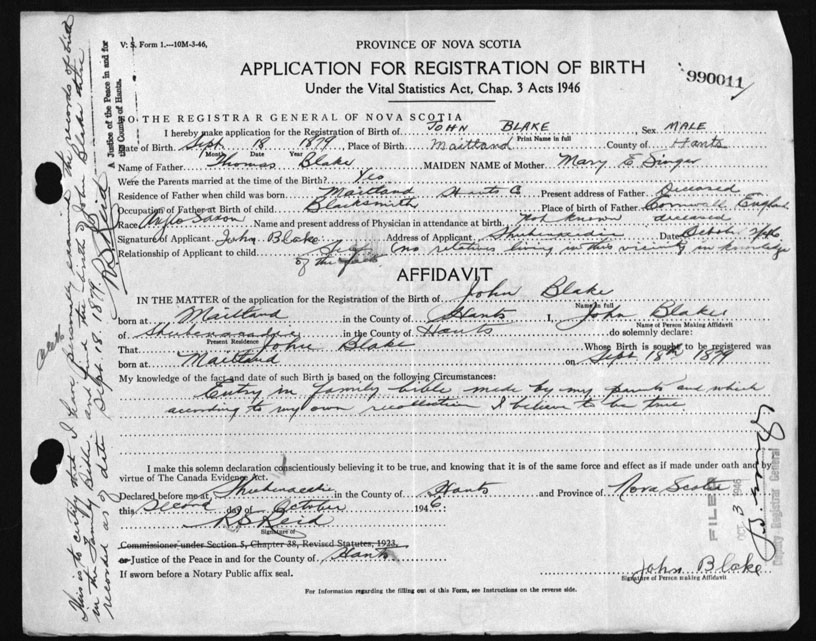 V. S. Form 1.—10M-3-46,
PROVINCE OF NOVA SCOTIA
APPLICATION FOR REGISTRATION OF BIRTH
Under the Vital Statistics Act, Chap. 3 Acts 1946
990011
TO THE REGISTRAR GENERAL OF NOVA SCOTIA
I hereby make application for the Registration of Birth of John Blake Sex Male
Print Name in full
Date of Birth Sept 18 1879, Place of Birth Maitland County of Hants
Month Date Year
Name of Father Thomas Blake MAIDEN NAME of Mother Mary E.
Were the Parents married at the time of Birth? Yes
Residence of Father when child was born Maitland Hants Co Present address of Father Deceased
Occupation of Father at Birth of child Blacksmith Place of birth of Father Cornwall England
Race Anglo Saxon Name and present address of Physician in attendance at birth not known deceased
Signature of Applicant John Blake Address of Applicant Shubenacadie Date Octob. 2/46
Relationship of Applicant to child Self (no relatives living in this vicinity in knowledge
of the facts
AFFIDAVIT
IN THE MATTER of the application for the Registration of Birth of John Blake
Name in full
born at Maitland in the County of Hants I, John Blake
Name of Person Making Affidavit
of Shubenacadie in the County of Hants do solemnly declare:
Present Residence
That John Blake Whose Birth is sought to be registered was
born at Maitland on Sept 18th 1879
My knowledge of the fact and date of such Birth is based on the following Circumstances:
Entry in family bible made by my parents and which
according to my own recollection I believe to be true
I make this solemn declaration conscientiously believing it to be true, and knowing that it is of the same force and effect as if made under oath and by
virtue of The Canada Evidence Act.
Declared before me at Shubenacadie in the County of Hants and Province of Nova Scotia
this Second day of October 1946
R S Reid
Signature of
Commissioner under Section 5, Chapter 38, Revised Statutes, 1923,
or Justice of the Peace in and for the County of Hants
If sworn before a Notary Public affix seal.
John Blake
Signature of Person Making Affidavit
For Information regarding the filling out of this Form, see Instructions on the reverse side.
This is to certify that I have personally examined the records of birth
in the Family Bible and find the birth of John Blake
recorded as of date Sept. 18. 1879
R S Reid
A Justice of the Peace in and for
the County of Hants.
FILED
OCT 3 1946
Deputy Registrar General